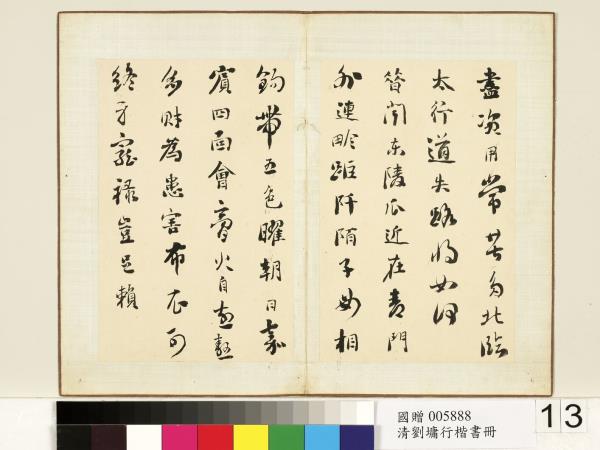 盡資用常苦多北臨
太行道失路將如何
昔聞東陵瓜近在青門
外連畛距阡陌子母相
鉤帶五色曜朝日嘉
賓四面會膏火自煎熬
多財為患害布衣可
終身寵祿豈足賴
國贈 005888
清劉墉行楷書冊
13